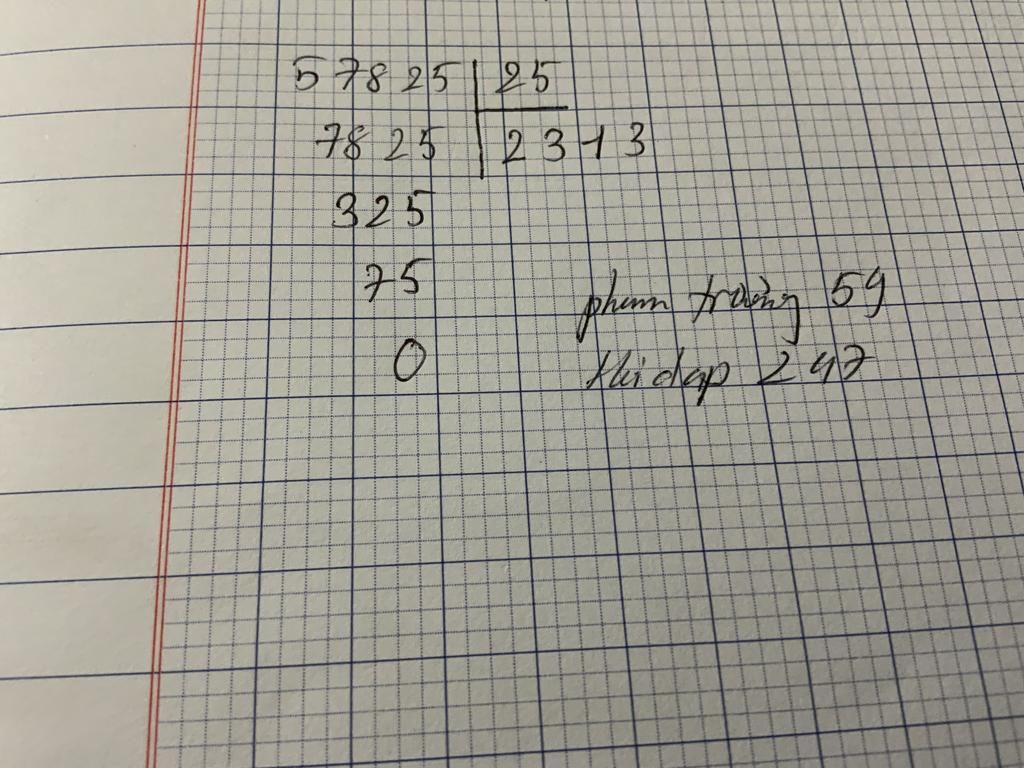 57825 25
7825 2313
325
75
phum trường 59
0
thi dap 247